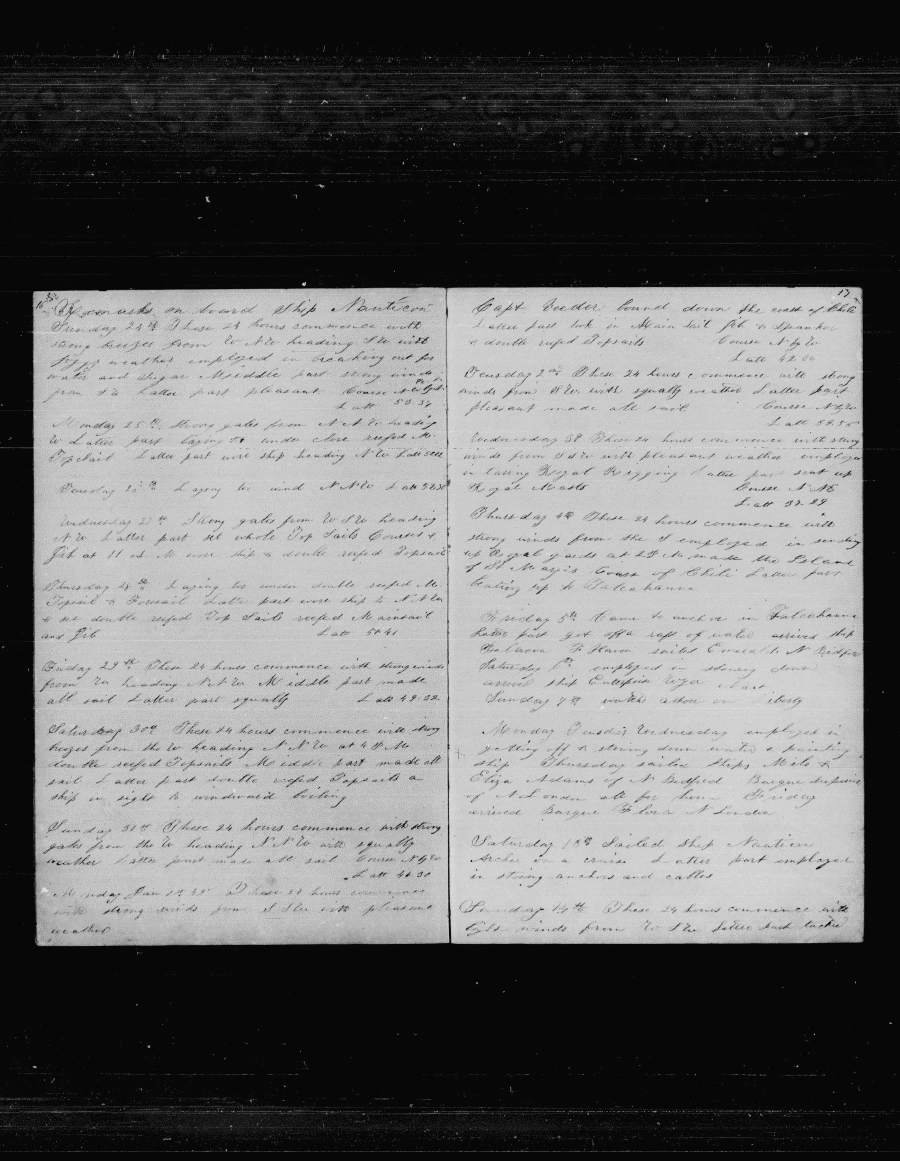 16
Remarks on board Ship Nauticon
Sunday 24th These 24 hours commence with
strong breezes from W NW heading SW with
foggy weather employed in breaking out for
water and Sugar Middle part strong winds
from SW Latter part pleasant Course
Latt 50.37
Monday 25th Strong gales from N NW heading
W Latter part laying to under close reefed M
Topsail Latter part wore ship heading NW Latt
Tuesday laying to wind N NW Latt
Wednesday Strong gales from W SW heading
NW Latter part set whole Top Sails Courses &
Jib at 11 M wore ship & double reefed Topsails
Thursday 28th Laying to under double reefed M
Topsail & Foresail Latter part wore ship to N NW
& set double reefed Top Sails reefed Mainsail
and Jib Latt 50 41
Friday 29th These 24 hours commence with strong winds
from W heading N NW Middle part made
all sail Latter part squally Latt 49.22
Saturday 30th These 24 hours commence with strong
breezes from the W heading N NW at 4 P M
double reefed Topsails Middle part made all
sail Latter part double reefed Topsails a
ship in sight to windward boiling
Sunday 31st These 24 hours commence with strong
gales from the W heading N NW with squally
weather Latter part made all sail Course N by W
Latt 46 30
Monday Jan 1st These 24 hours commence
with strong winds from S SW with pleasant
weather
17
Capt Veeder bound down the coast of Chili
Latter part took in Main sail Jib & Spanker
& double reefed Topsails Course N by W
Latt 42.00
Tuesday 2nd These 24 hours commence with strong
winds from SW with squally weather Latter part
pleasant made all sail Course N by W
Latt
Wednesday 3d These 24 hours commence with strong
winds from S SW with pleasant weather employed
in taking Royal Rigging latter part sent up
Royal Masts Course N NE
Latt 37.29
Thursday 4th These 24 hours commence with
strong winds from the S employed in sending
up Royal yards at 2 P M made the Island
of St Marys Coast of Chili Latter part
beating up to Talcahuana
Friday 5th Came to anchor in Talcahuana
Latter part got off a raft of water arrived ship
Balaena F Haven sailed Emerald N Bedford
Saturday 6th employed in stowing down
arrived ship
Sunday 7th watch ashore on liberty
Monday Tuesday Wednesday employed in
getting off & stowing down water & painting
ship Thursday sailed Ships Milo &
Eliza Adams of N Bedford Barque
of N London all for home Friday
arrived Barque Flora N London
Saturday 13th Sailed Ship Nauticon
Archer on a cruise Latter part employed
in stowing anchors and cables
Sunday 14th These 24 hours commence with
light winds from W SW Latter part tacked